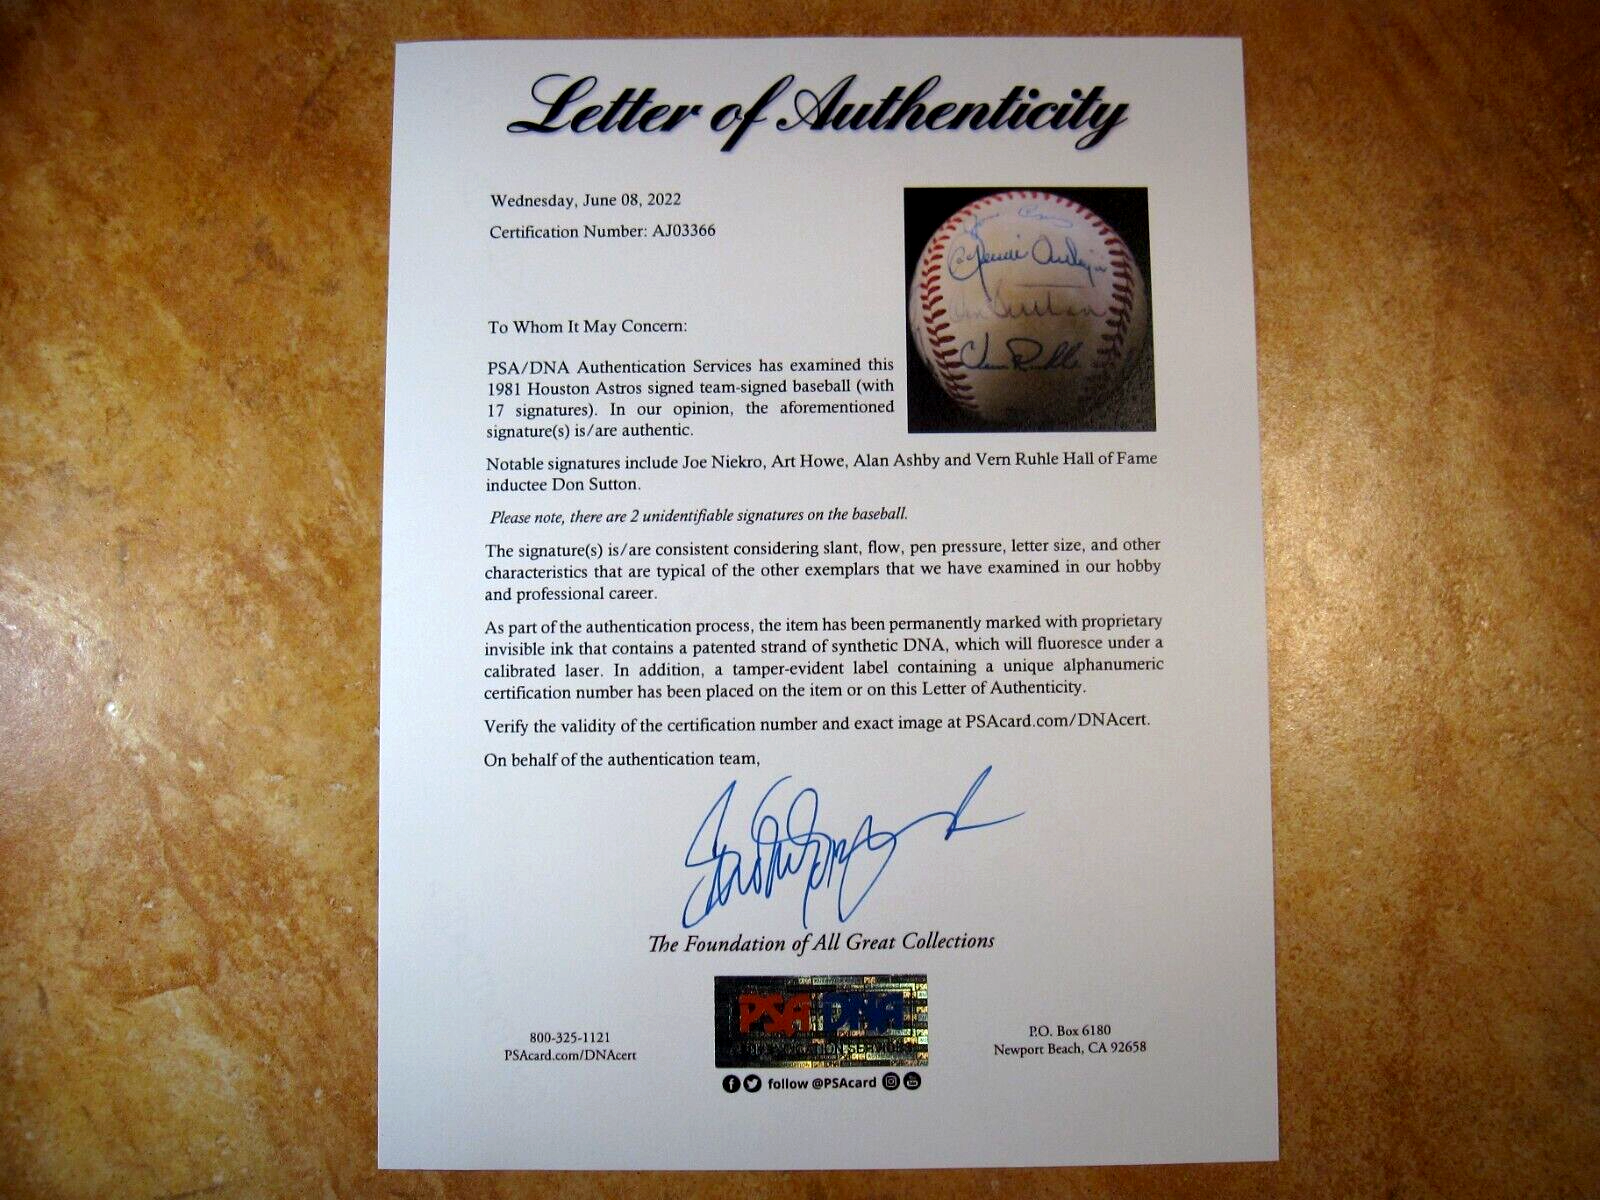 Letter of Authenticity
Wednesday, June 08, 2022
Certification Number: AJ03366
To Whom It May Concern:
PSA/DNA Authentication Services has examined this
1981 Houston Astros signed team-signed baseball (with
17 signatures). In our opinion, the aforementioned
signature(s) is/are authentic.
Notable signatures include Joe Niekro, Art Howe, Alan Ashby and Vern Ruhle Hall of Fame
inductee Don Sutton.
Please note, there are 2 unidentifiable signatures on the baseball.
The signature(s) is/are consistent considering slant, flow, pen pressure, letter size, and other
characteristics that are typical of the other exemplars that we have examined in our hobby
and professional career.
As part of the authentication process, the item has been permanently marked with proprietary
invisible ink that contains a patented strand of synthetic DNA, which will fluoresce under a
calibrated laser. In addition, a tamper-evident label containing a unique alphanumeric
certification number has been placed on the item or on this Letter of Authenticity.
Verify the validity of the certification number and exact image at PSAcard.com/DNAcert.
On behalf of the authentication team,
The Foundation of All Great Collections
PSA DNA
800-325-1121
PSAcard.com/DNAcert
P.O. Box 6180
Newport Beach, CA 92658
follow @PSAcard